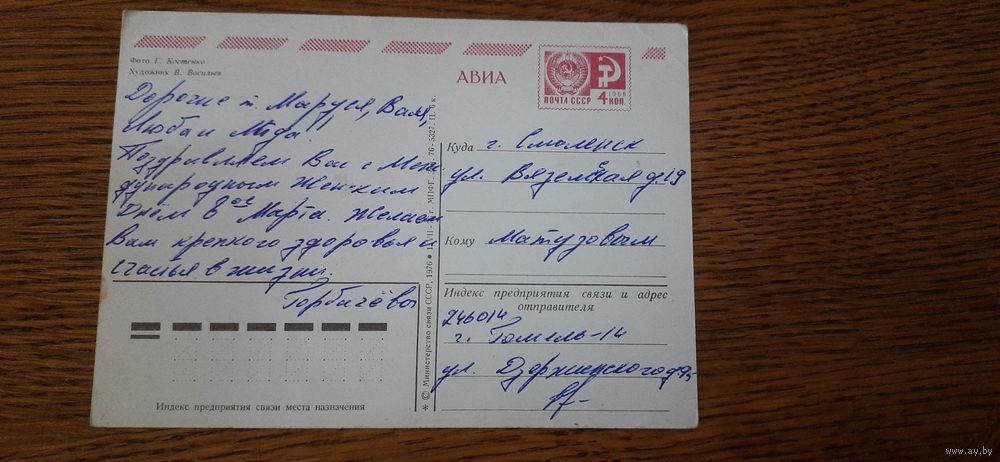 Фото Г. Костенко
Художник В. Васильев
АВИА
ПОЧТА СССР
1966
4 КОП.
Дорогие т. Маруся, Валя,
Люба и Лида!
Поздравляем Вас с Меж
дународным Женским
Днём 8ое Марта. Желаем
Вам крепкого здоровья и
счастья в жизни.
Горбачёвы
Индекс предприятия связи места назначения
© Министерство связи СССР, 1976
Куда г. Смоленск
ул. Вяземская д. 19
Кому Матузовым
Индекс предприятия связи и адрес
отправителя
246014
г. Гомель-14
ул. Дзержинского
www.ay.by